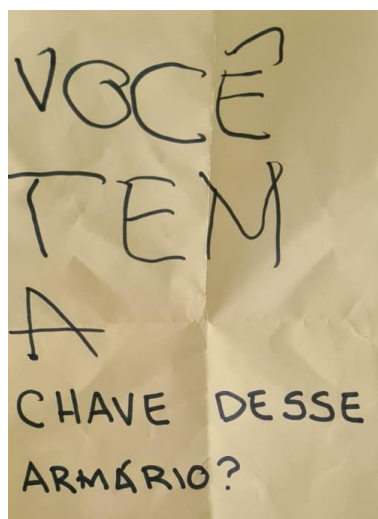 VOCÊ
TEM
A
CHAVE DESSE
ARMÁRIO?